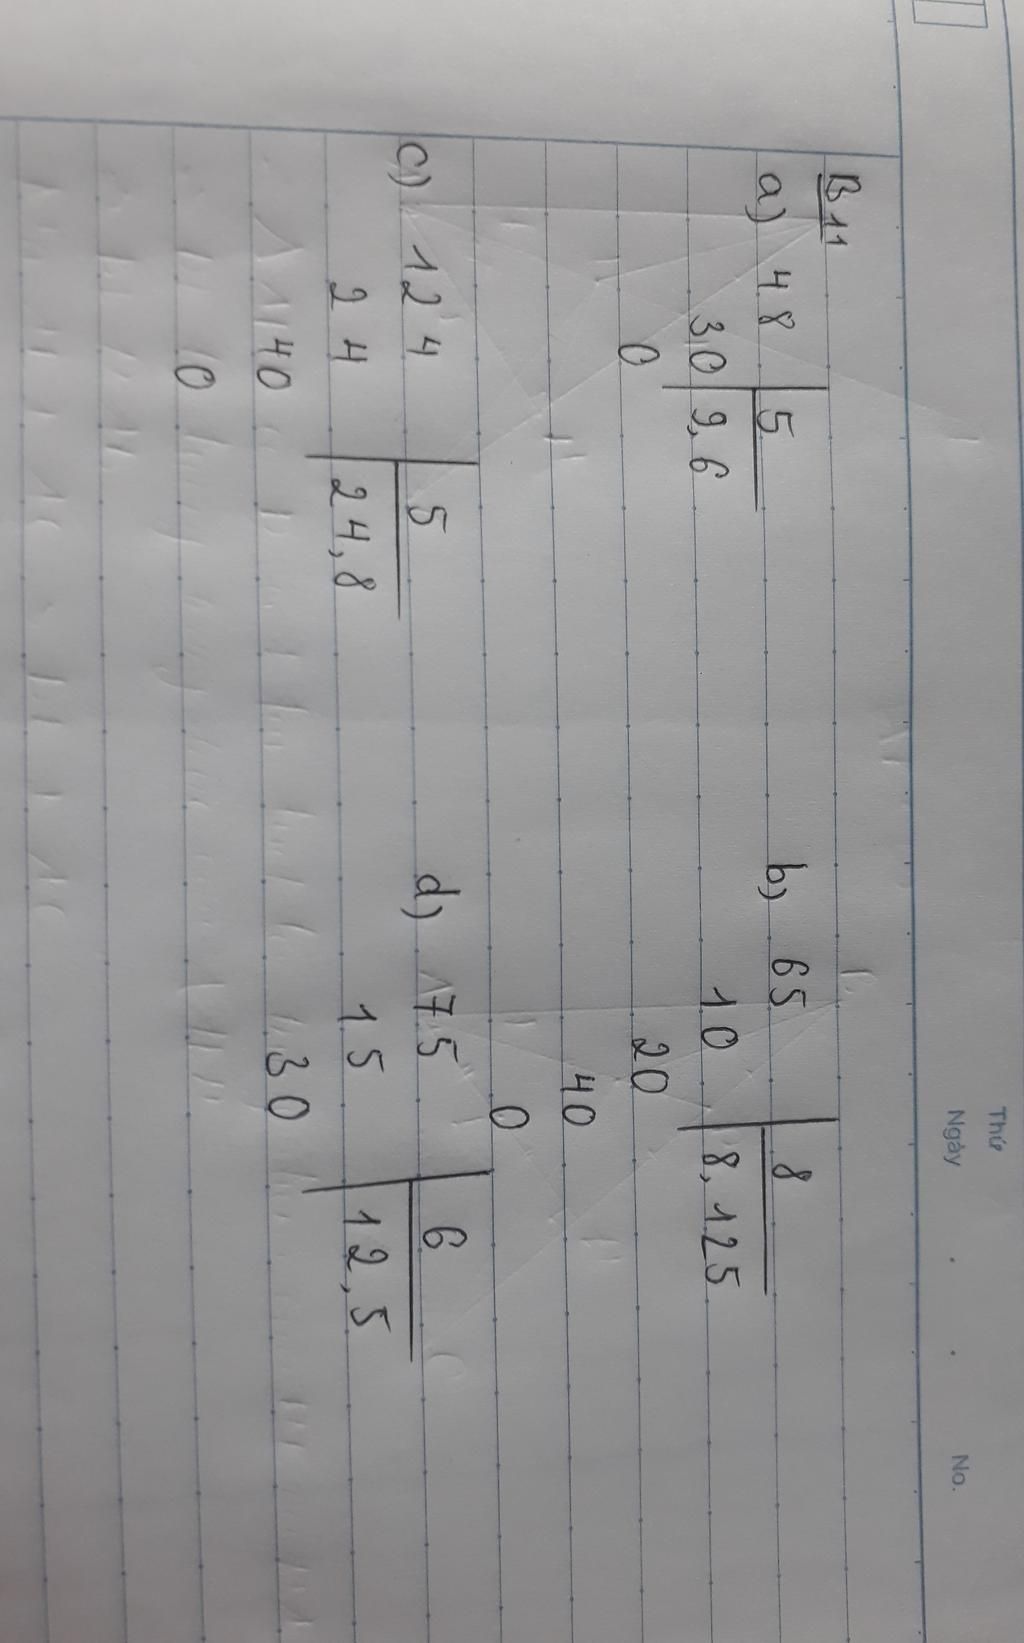 Thứ
Ngày . . No.
B11
a) 48 5 b) 65 8
30 9,6 10 8,125
0 20
40
0
c) 124 5 d) 75 6
24 24,8 15 12,5
40 30
0